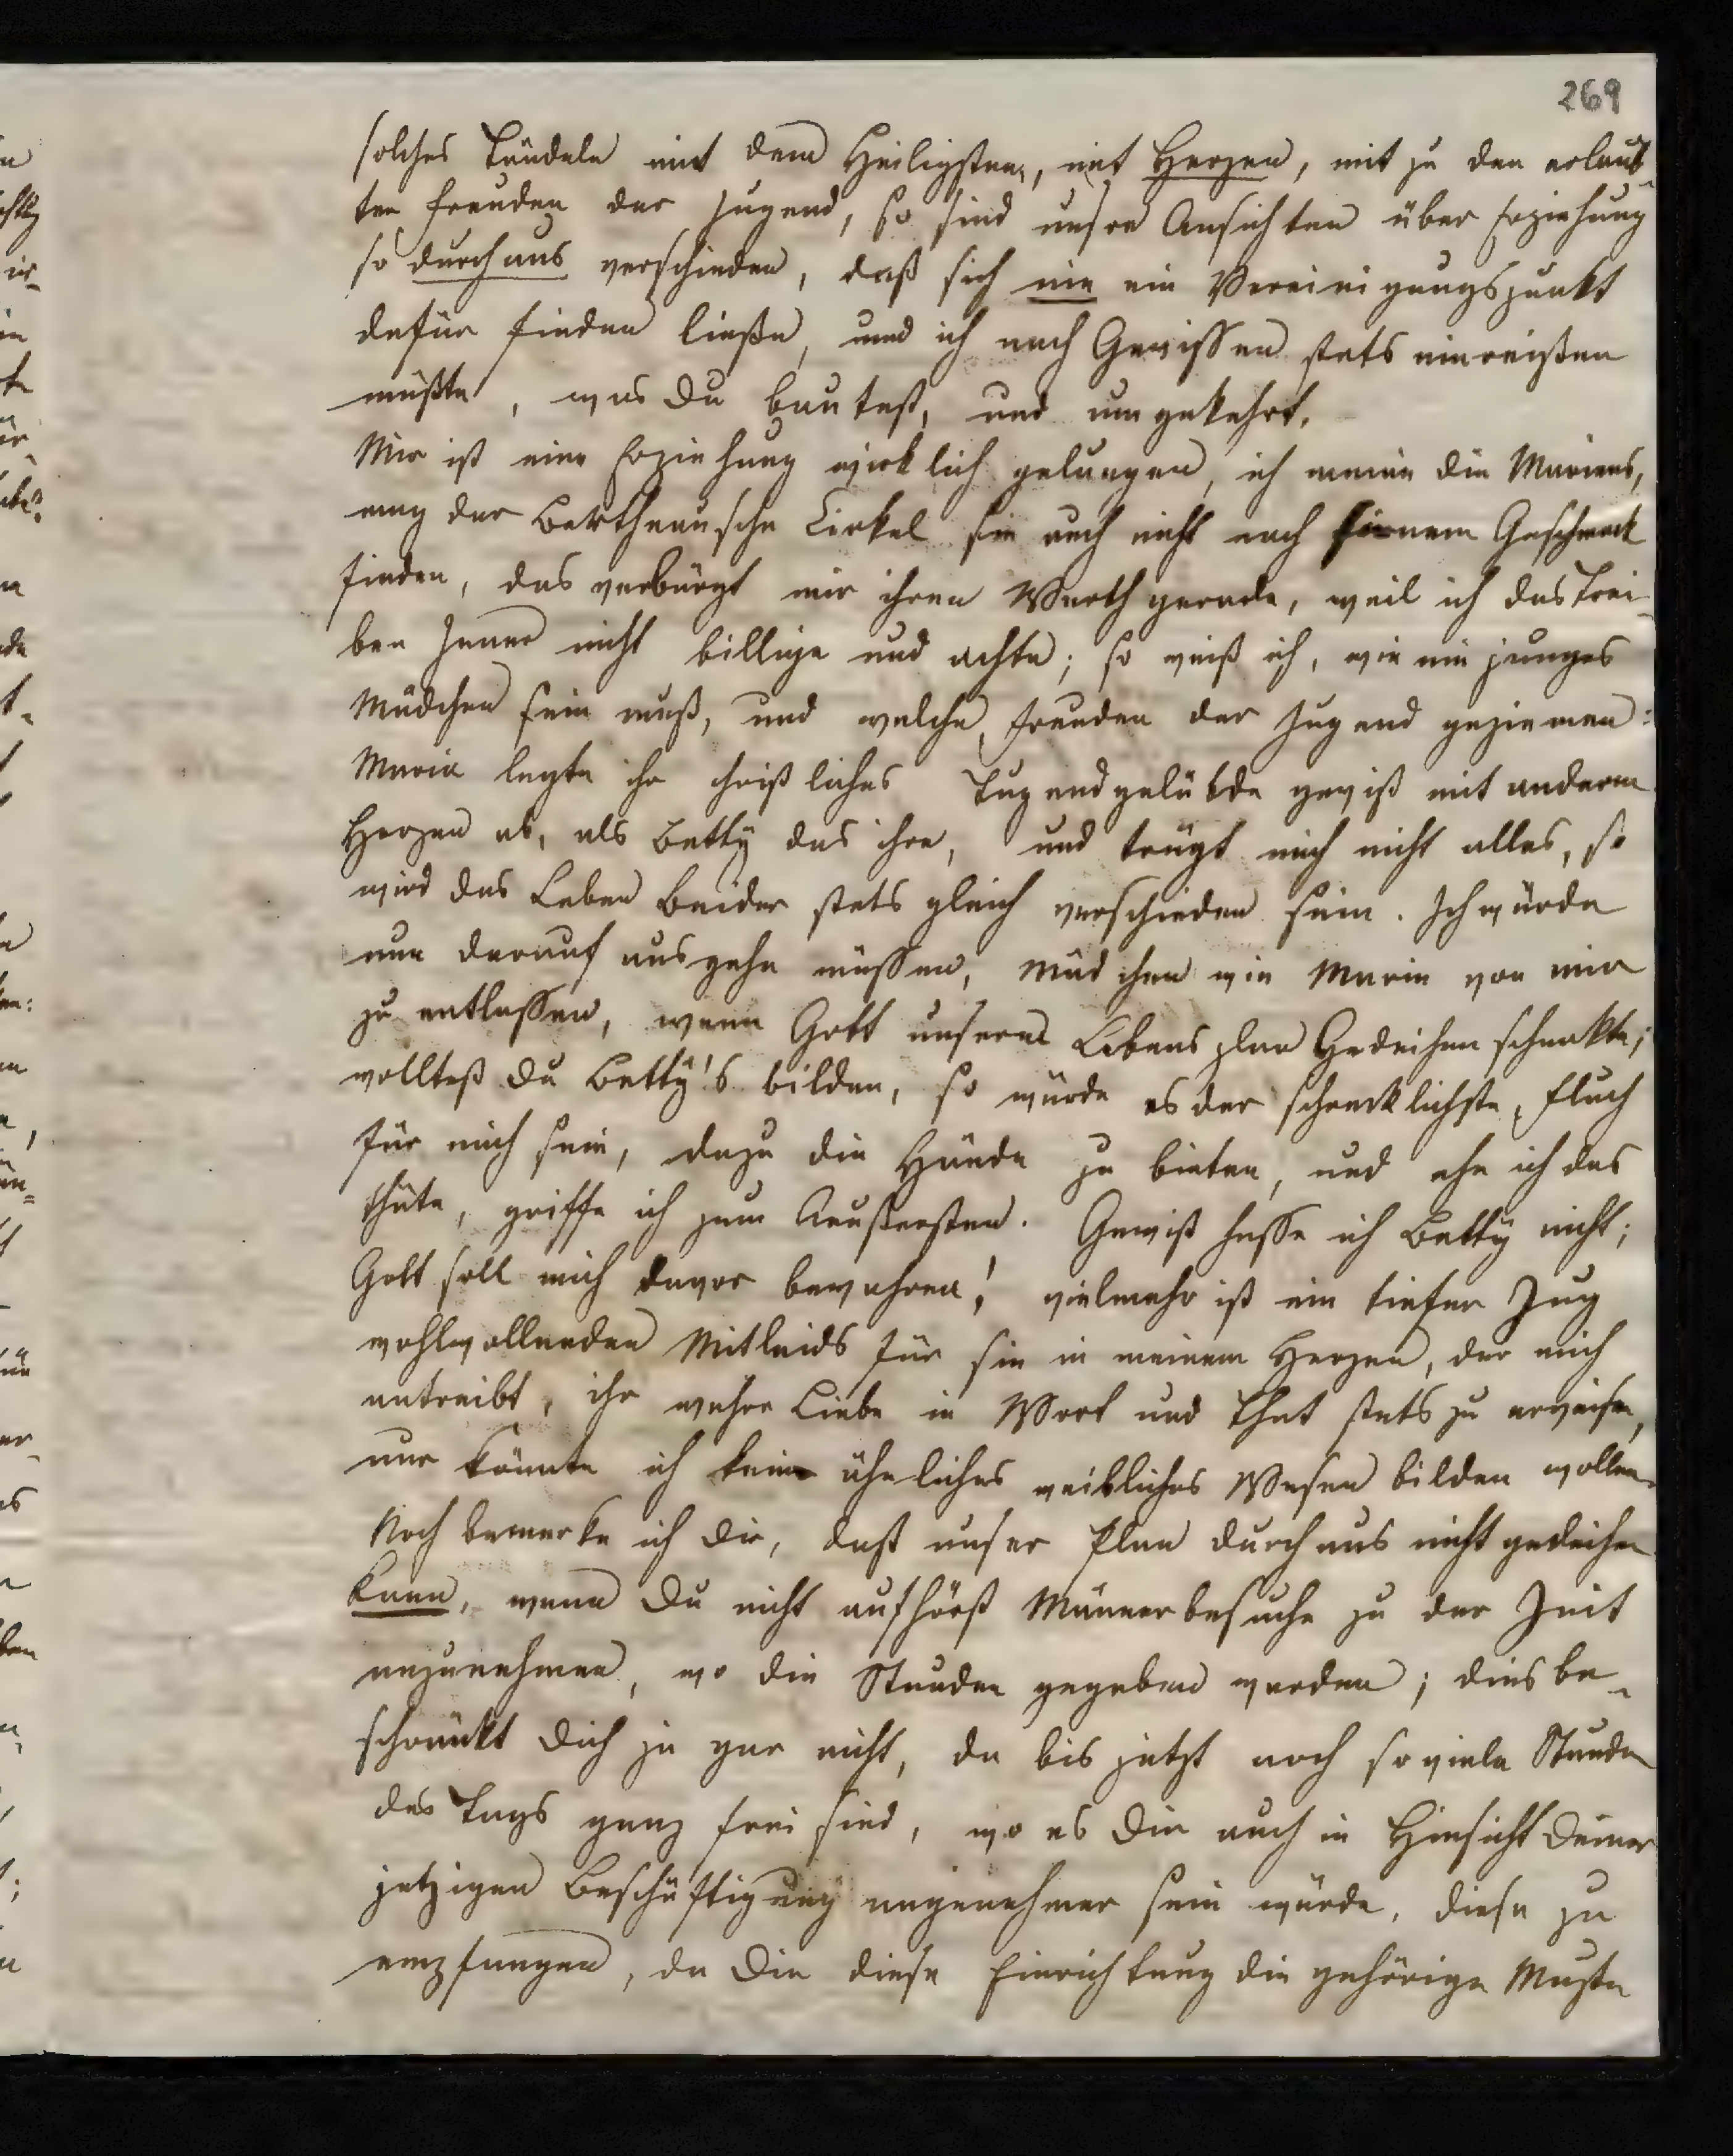 269
solches Tändeln mit dem Heiligsten, mit Herzen, mit zu den erlaub-
ten Freuden der Jugend, so sind unsre Ansichten über Erziehung
so durchaus verschieden, daß sich nie ein Vereinigungspunkt
dafür finden ließe, und ich nach Gewissen stets einreißen
müßte, was Du bautest, und umgekehrt.
Mir ist eine Erziehung wirklich gelungen, ich meine die Mariens,
mag der Bertheausche Cirkel sie auch nicht nach seinem Geschmack
finden, das verbürgt mir ihren Werth gerade, weil ich das Trei-
ben Jener nicht billige und achte; so weiß ich, wie ein junges
Mädchen sein muß, und welche Freuden der Jugend geziemen:
Marie legte ihr christliches Tugendgelübde gewiß mit anderm
Herzen ab, als Betty das ihre, und trügt mich nicht alles, so
wird das Leben Beider stets gleich verschieden sein. Ich würde
nun darauf ausgehn müssen, Mädchen wie Marie von mir
zu entlassen, wenn Gott unserm Lebensplan Gedeihen schenkte;
wolltest Du Betty's bilden, so würde es der schrecklichste Fluch
für mich sein, dazu die Hände zu bieten, und ehe ich das
thäte, griffe ich zum Aeußersten. Gewiß hasse ich Betty nicht;
Gott soll mich davor bewahren! vielmehr ist ein tiefer Zug
wohlwollenden Mitleids für sie in meinem Herzen, der mich
antreibt, ihr wahre Liebe in Wort und That stets zu erweisen,
nur könnte ich kein ähnliches weibliches Wesen bilden wollen.
Noch bemerke ich Dir, daß unser Plan durchaus nicht gedeihen
kann, wenn Du nicht aufhörst Männerbesuche zu der Zeit
anzunehmen, wo die Stunden gegeben werden; dies be-
schränkt Dich ja gar nicht, da bis jetzt noch so viele Stunden
des Tags ganz frei sind, wo es Dir auch in Hinsicht Deiner
jetzigen Beschäftigung angenehmer sein würde, diese zu
empfangen, da Dir diese Einrichtung die gehörige Muße